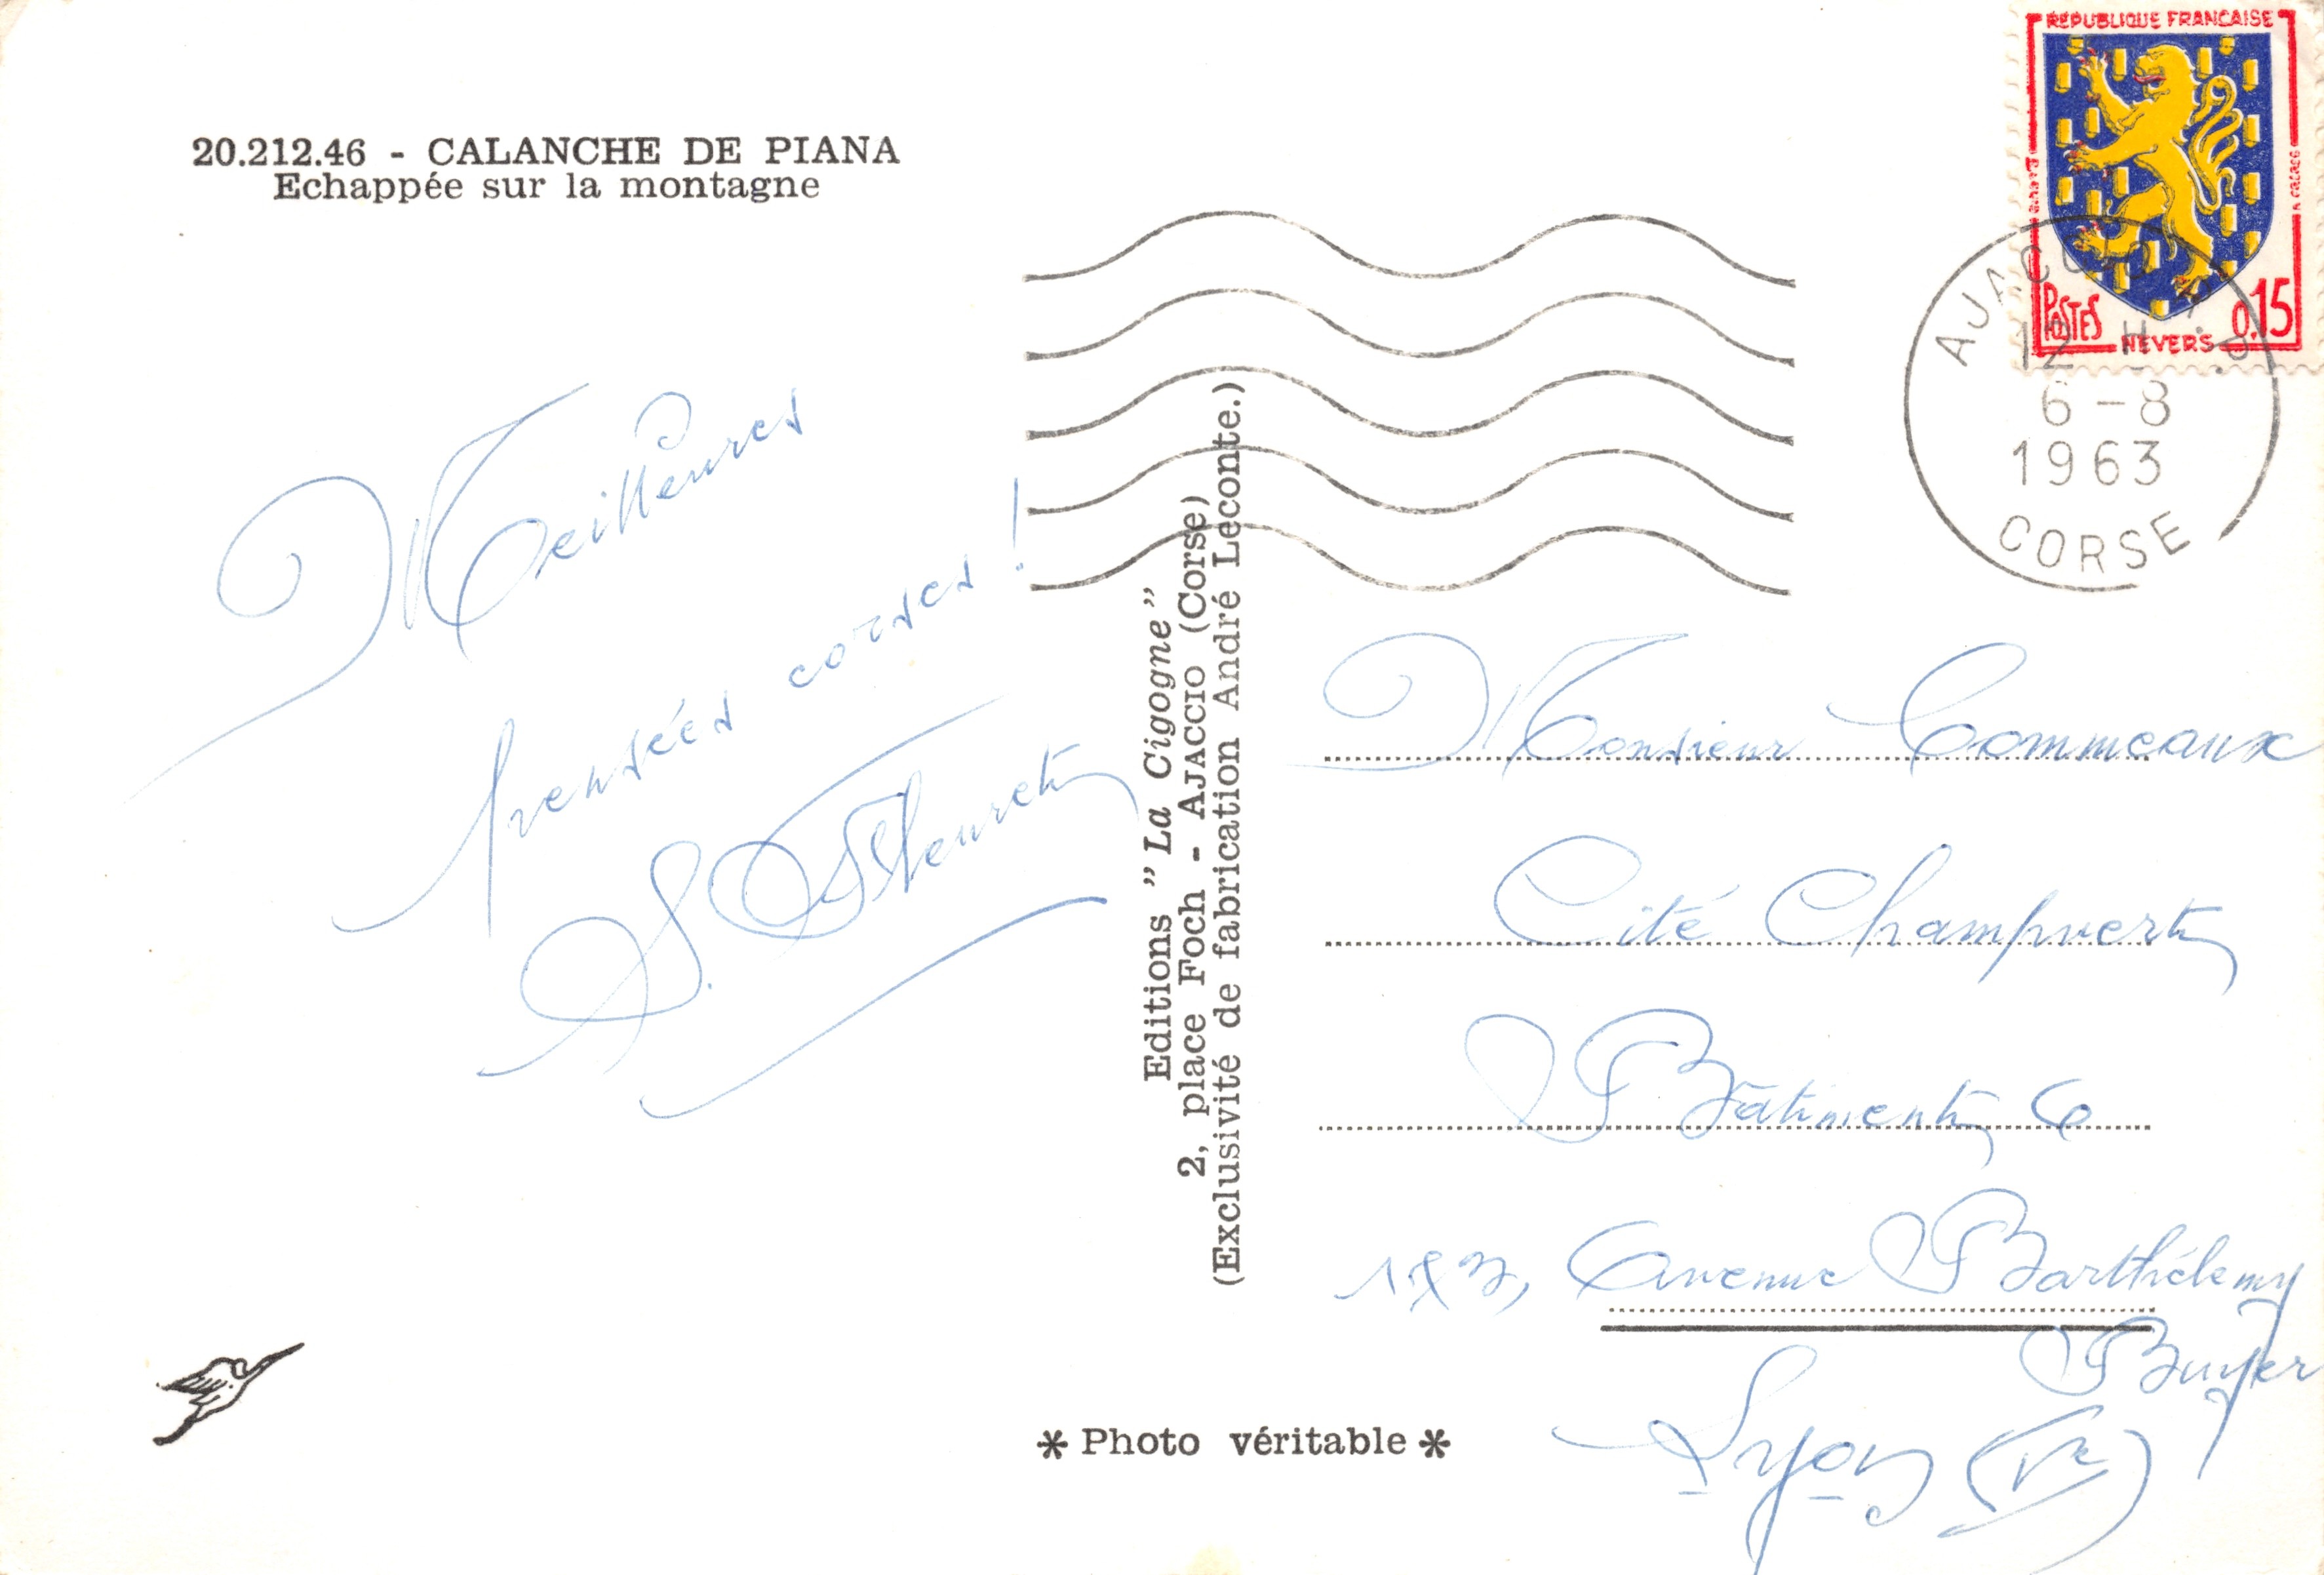 20.212.46 - CALANCHE DE PIANA
Echappée sur la montagne
Meilleures
pensées corses !
Editions "La Cigogne"
2, place Foch - AJACCIO (Corse)
(Exclusivité de fabrication André Leconte.)
* Photo véritable *
REPUBLIQUE FRANCAISE
POSTES
0,15
NEVERS
AJACCIO
12 H
6 - 8
1963
CORSE
Monsieur Commeaux
Cité Champvert
Bâtiment
Avenue Barthélemy
Buyer
Lyon (Ve)